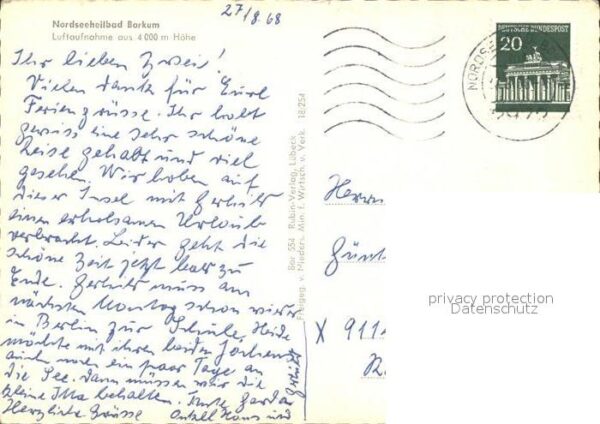 27/8.68
Nordseeheilbad Borkum
Luftaufnahme aus 4000 m Höhe
Ihr lieben Zwei!
Vielen Dank für Eure
Feriengrüsse. Ihr habt
gewiss eine sehr schöne
Reise gehabt und viel
gesehen. Wir haben auf
dieser Insel mit
einen erholsamen Urlaub
verbracht. Leider geht die
schöne Zeit jetzt bald zu
Ende. muss am
nächsten Montag schon wieder
in Berlin zur Schule. Heide
möchte mit ihren beiden
auch noch ein paar Tage an
die See. Dann müssen wir die
kleine behalten. Tante
Herzliche Grüsse Onkel Hans und
Bor 554 Rubin-Verlag, Lübeck
Freigeg. v. Nieders. Min. f. Wirtsch. v. Verk. 18/254
DEUTSCHE BUNDESPOST
20
NORDSEE
Herrn
Günt
X 911
privacy protection
Datenschutz